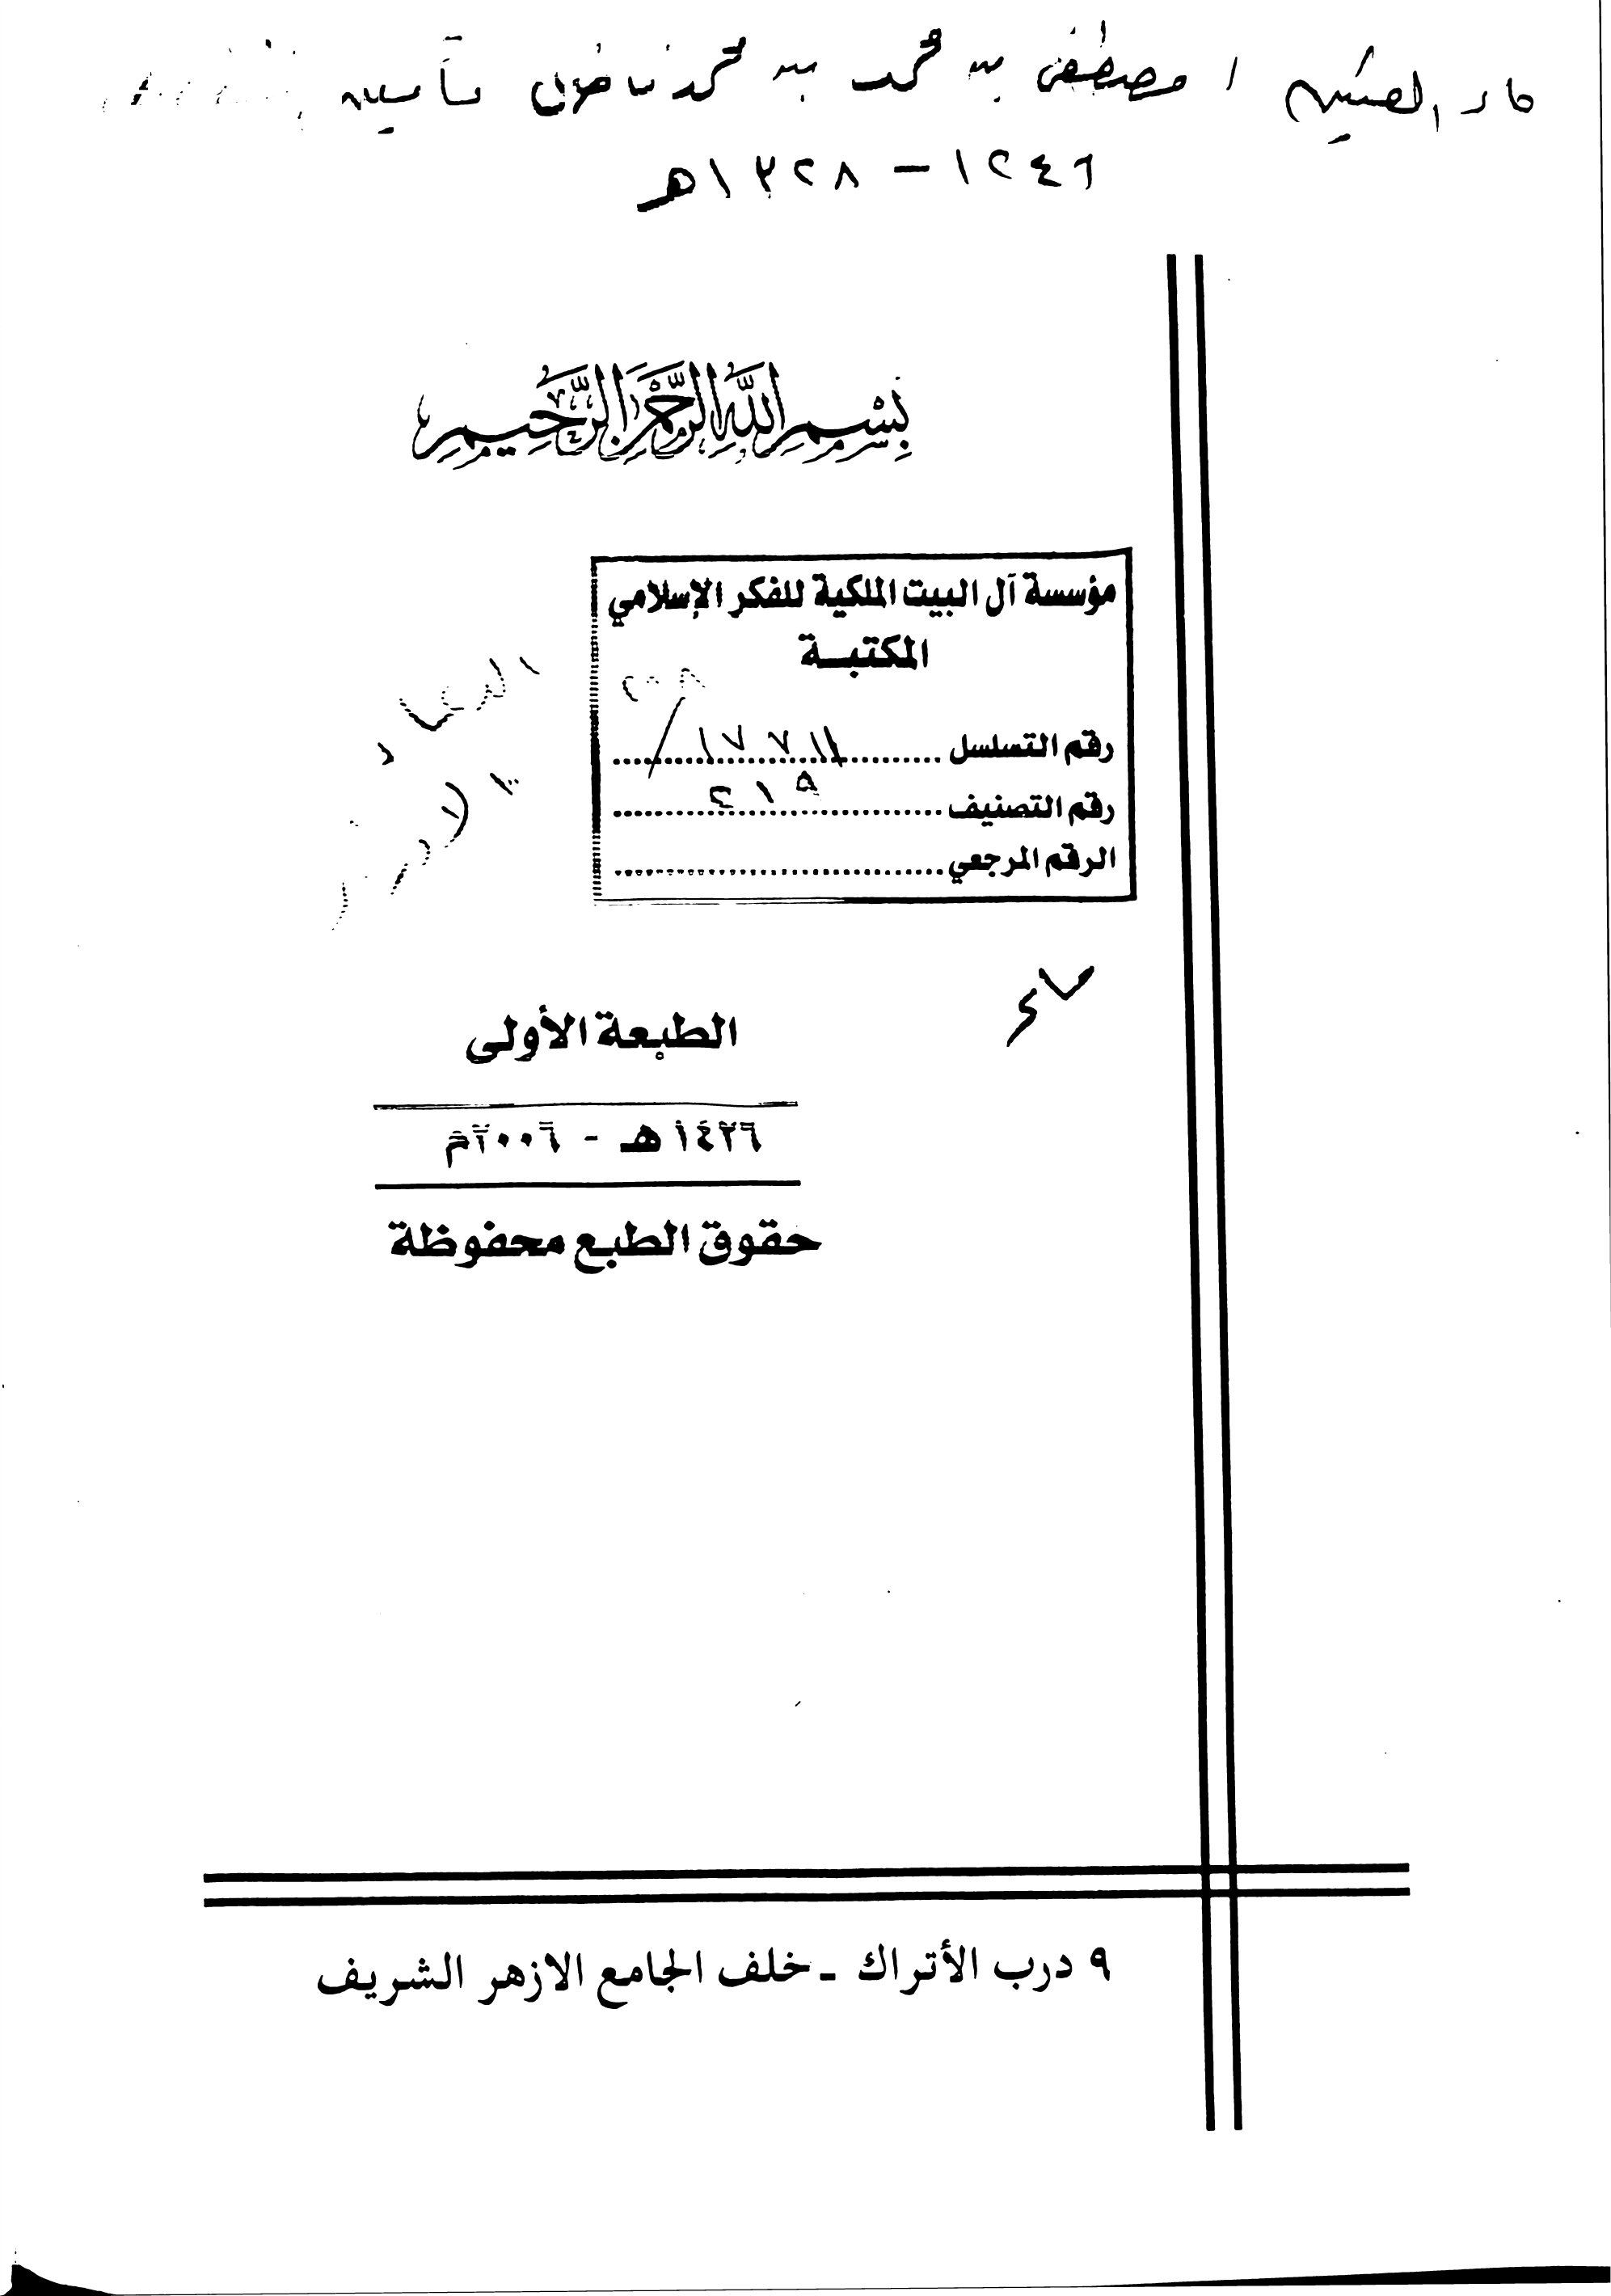 ماء العينين / مصطفى بن محمد بن محمد فاضل
١٢٤٦ - ١٣٢٨هـ
بِسْمِ اللَّهِ الرَّحْمَنِ الرَّحِيمِ
مؤسسة آل البيت الملكية للفكر الإسلامي
المكتبة
٢٠٠٨
رقم التسلسل
رقم التصنيف ٢١٥
الرقم المرجعي
الطبعة الأولى
١٤٢٦هـ - ٢٠٠٦م
حقوق الطبع محفوظة
٩ درب الأتراك - خلف الجامع الازهر الشريف